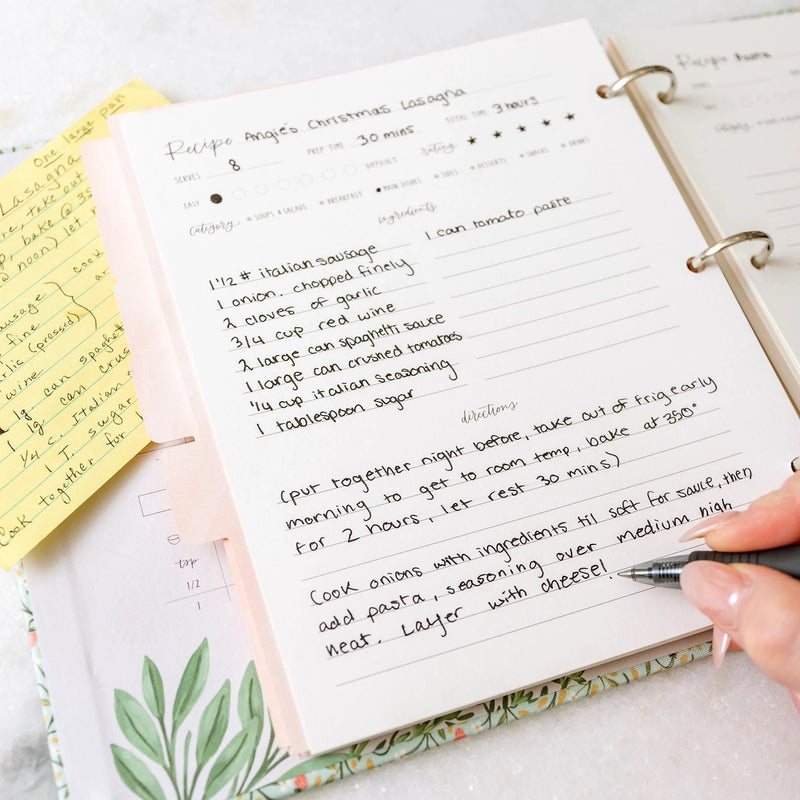 One large pan
Lasagna
take out
bake @ 35
noon) let
ausage
cook
fine
(pressed)
wine
1 lg can spaghet
1 lg can crus
1/4 c. Italian s
1 T. sugar
Cook together for
top
1/2
1
Recipe Angie's Christmas Lasagna
SERVES 8 PREP TIME 30 mins TOTAL TIME 3 hours
EASY DIFFICULT rating ★ ★ ★ ★ ★
category SOUPS & SALADS BREAKFAST MAIN DISHES SIDES DESSERTS SNACKS DRINKS
ingredients
1 1/2 # italian sausage
1 onion, chopped finely
2 cloves of garlic
3/4 cup red wine
2 large can spaghetti sauce
1 large can crushed tomatoes
1/4 cup italian seasoning
1 tablespoon sugar
1 can tomato paste
directions
(put together night before, take out of frig early
morning to get to room temp, bake at 350°
for 2 hours, let rest 30 mins)
Cook onions with ingredients til soft for sauce, then
add pasta, seasoning over medium high
heat. Layer with cheese!
Recipe Pasta